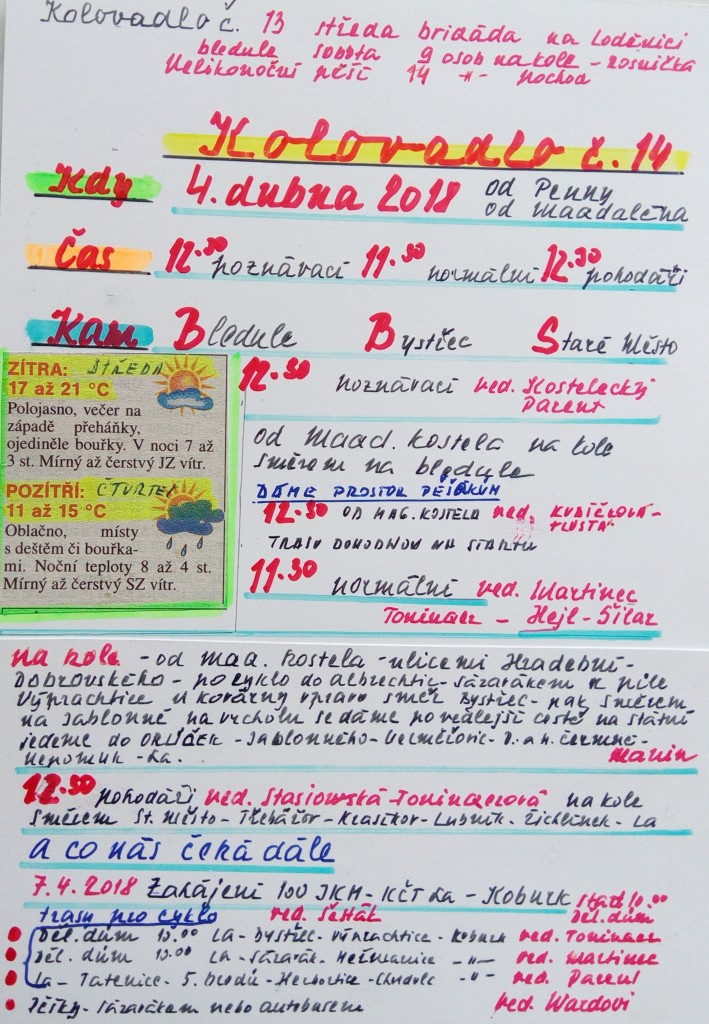 Kolovadlo č. 13 středa brigáda na Loděnici
bledule sobota 9 osob na kole - rosnička
Velikonoční pěší 14 -"- pochod
Kolovadlo č. 14
Kdy 4. dubna 2018 od Penny
od Maadaléna
Čas 12.30 poznávací 11.30 normální 12.30 pohodáři
Kam Bledule Bystřec Staré Město
ZÍTRA: STŘEDA
17 až 21 °C
Polojasno, večer na
západě přeháňky,
ojediněle bouřky. V noci 7 až
3 st. Mírný až čerstvý JZ vítr.
POZÍTŘÍ: ČTVRTEK
11 až 15 °C
Oblačno, místy
s deštěm či bouřka-
mi. Noční teploty 8 až 4 st.
Mírný až čerstvý SZ vítr.
12.30 poznávací ved. Kostelecký
Parent
od Maad. kostela na kole
směrem na bledule
DÁME PROSTOR PĚŠÁKŮM
12.30 OD MAG. KOSTELA ved. KUBÍČKOVÁ-
TLUSTÁ
TRASU DOHODNOU NA STARTU
11.30 normální ved. Martinec
Toninaer - Hejl - Silar
na kole - od Maa. kostela - ulicemi Hradební -
Dobrovského - po cyklo do Albrechtic - Sázarákem k pile
Výprachtice u kovárny vpravo směr Bystřec - pak směrem
na Jablonné na vrcholu se dáme po vedlejší cestě na státní
jedeme do ORLIČEK - Jablonného - Verměřovic - D. a H. Čermné -
Nepomuk - La. Marin
12.30 pohodáři ved. Stasiowská - Toninaerová na kole
směrem St. Město - Třebářov - Krasíkov - Lubník - Žichlínek - La
a co nás čeká dále
7.4.2018 Zahájení 100 JKM - KČT La - Koburk start 10.00
trasy pro cyklo ved. Šesták Děl. dům
Děl. dům 10.00 La - Bystřec - Výprachtice - Koburk ved. Toninaer
Děl. dům 10.00 La - Sázarák - Heřmanice -"- ved. Martinec
La - Tatenice - 5. brodů - Hechovice - -"- ved. Parent
Pěšky - Sázarákem nebo autobusem ved. Wardovi